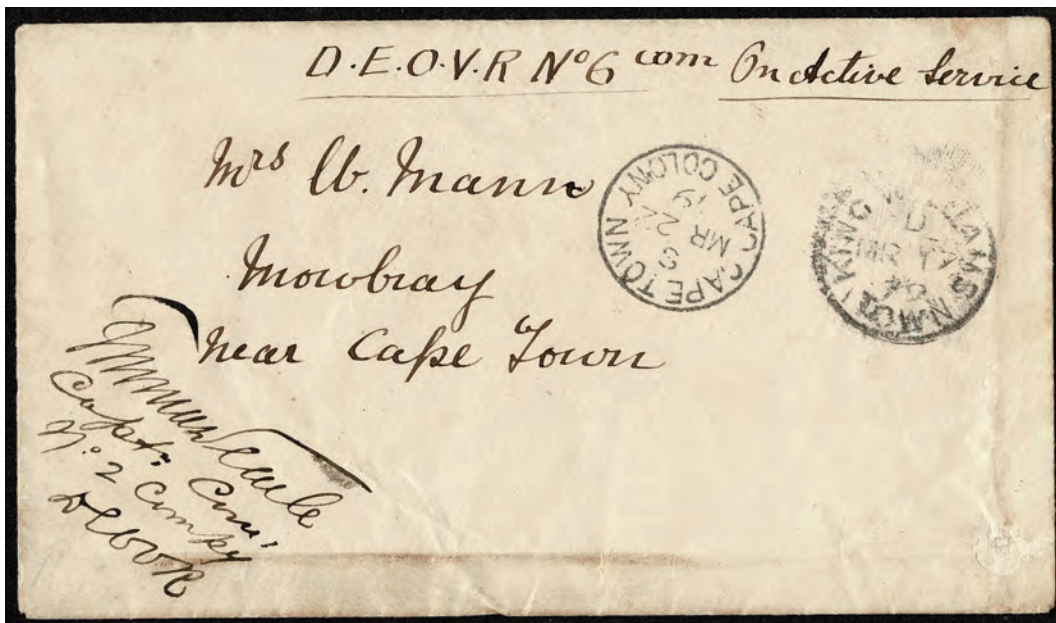 D.E.O.V.R Nº6 com On Active Service
Mrs W. Mann
Mowbray
Near Cape Town
CAPE TOWN CAPE COLONY
MR 2
KING WILLIAMS TOWN
D
MR 17
Capt. Com:
Nº 2 Compy
DEOVR